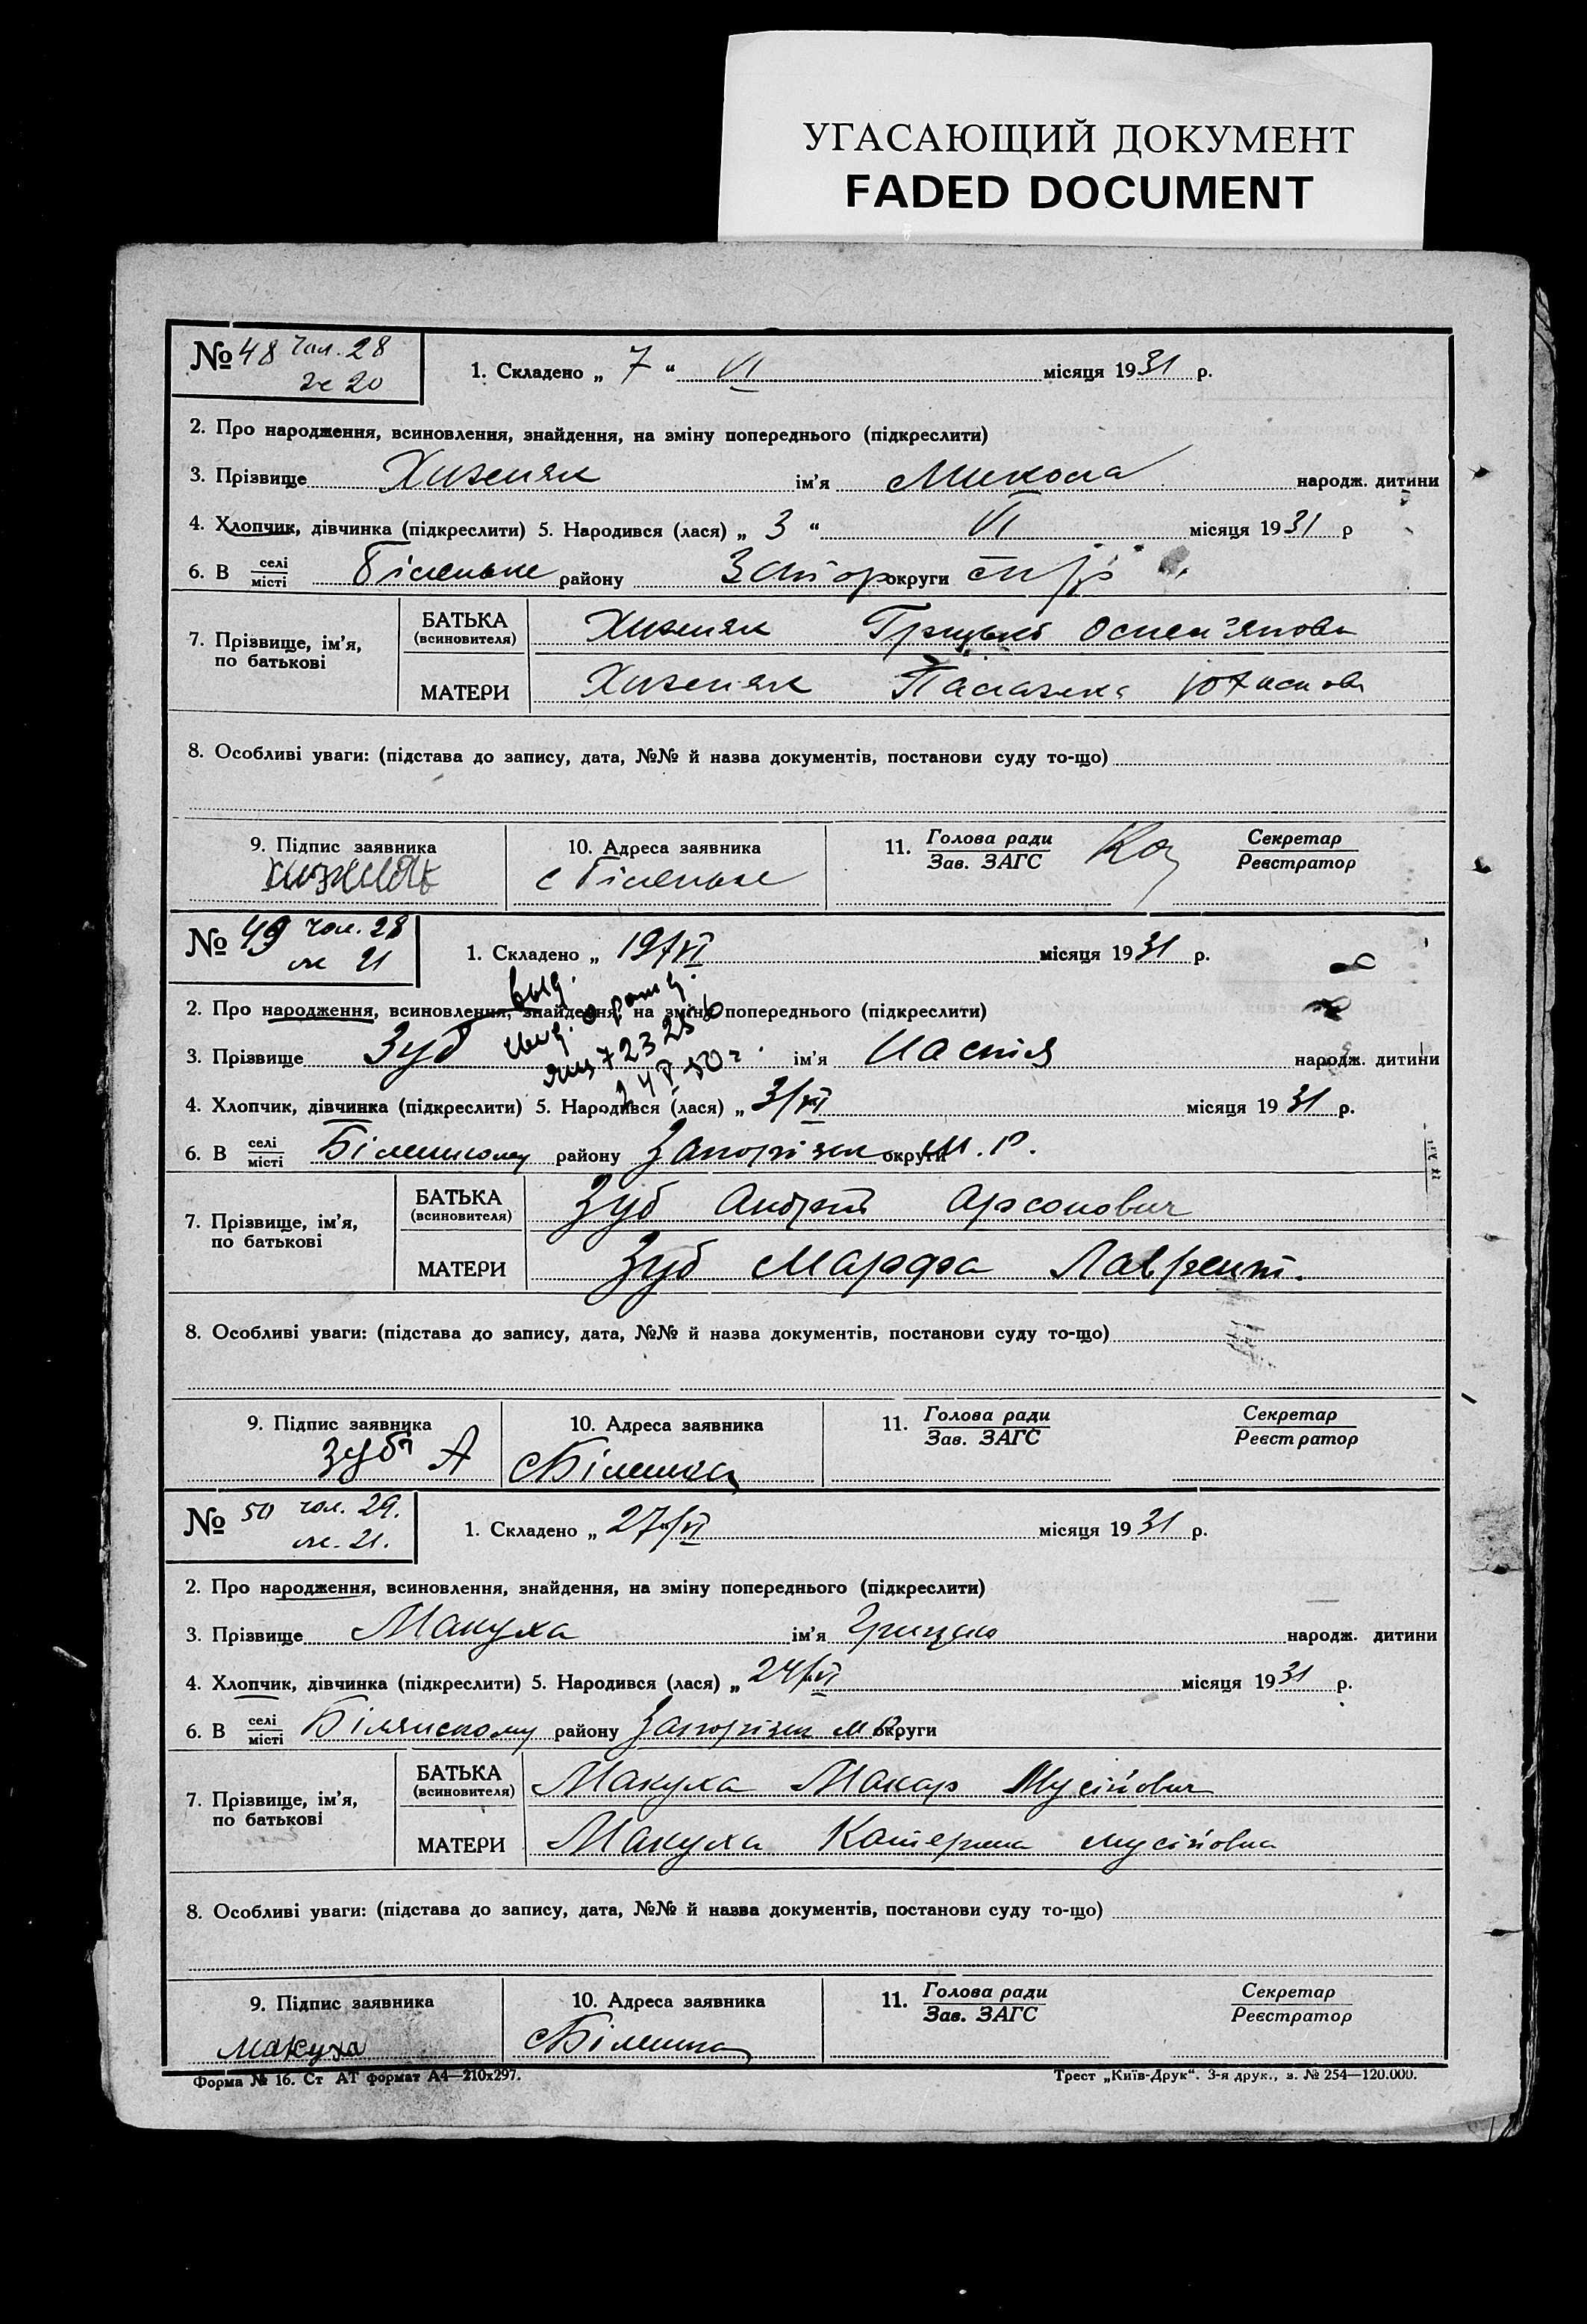 УГАСАЮЩИЙ ДОКУМЕНТ
FADED DOCUMENT
№ 48 чол. 28
ж 20
1. Складено „ 7 “ VI місяця 1931 р.
2. Про народження, всиновлення, знайдення, на зміну попереднього (підкреслити)
3. Прізвище Хижняк ім’я Микола народж. дитини
4. Хлопчик, дівчинка (підкреслити) 5. Народився (лася) „ 3 “ VI місяця 1931 р
6. В селі/місті Біленьке району Запор округи
7. Прізвище, ім’я, по батькові
БАТЬКА (всиновителя) Хижняк Грицько
МАТЕРИ Хижняк Палажка
8. Особливі уваги: (підстава до запису, дата, №№ й назва документів, постанови суду то-що)
9. Підпис заявника 10. Адреса заявника 11. Голова ради/Зав. ЗАГС Секретар/Реєстратор
Хижняк с Біленьке
№ 49 чол. 28
ж 21
1. Складено „ 19/VI місяця 1931 р.
выд.
2. Про народження, всиновлення, знайдення, на зміну попереднього (підкреслити)
свид. о рожд.
3. Прізвище Зуб ім’я Настя народж. дитини
4. Хлопчик, дівчинка (підкреслити) 5. Народився (лася) „ 3/VI місяця 1931 р.
6. В селі/місті району Запорізьк округи м. р.
7. Прізвище, ім’я, по батькові
БАТЬКА (всиновителя) Зуб Андрій
МАТЕРИ Зуб Марфа Лаврент.
8. Особливі уваги: (підстава до запису, дата, №№ й назва документів, постанови суду то-що)
9. Підпис заявника 10. Адреса заявника 11. Голова ради/Зав. ЗАГС Секретар/Реєстратор
Зуб А
№ 50 чол. 29.
ж. 21.
1. Складено „ 27/VI місяця 1931 р.
2. Про народження, всиновлення, знайдення, на зміну попереднього (підкреслити)
3. Прізвище Макуха ім’я Грицько народж. дитини
4. Хлопчик, дівчинка (підкреслити) 5. Народився (лася) „ 24/VI місяця 1931 р.
6. В селі/місті району Запорізьк округи
7. Прізвище, ім’я, по батькові
БАТЬКА (всиновителя) Макуха Макар Мусійович
МАТЕРИ Макуха Катерина Мусійовна
8. Особливі уваги: (підстава до запису, дата, №№ й назва документів, постанови суду то-що)
9. Підпис заявника 10. Адреса заявника 11. Голова ради/Зав. ЗАГС Секретар/Реєстратор
Макуха
Форма № 16. Ст АТ формат А4—210х297. Трест „Київ-Друк“. 3-я друк., з. № 254—120.000.